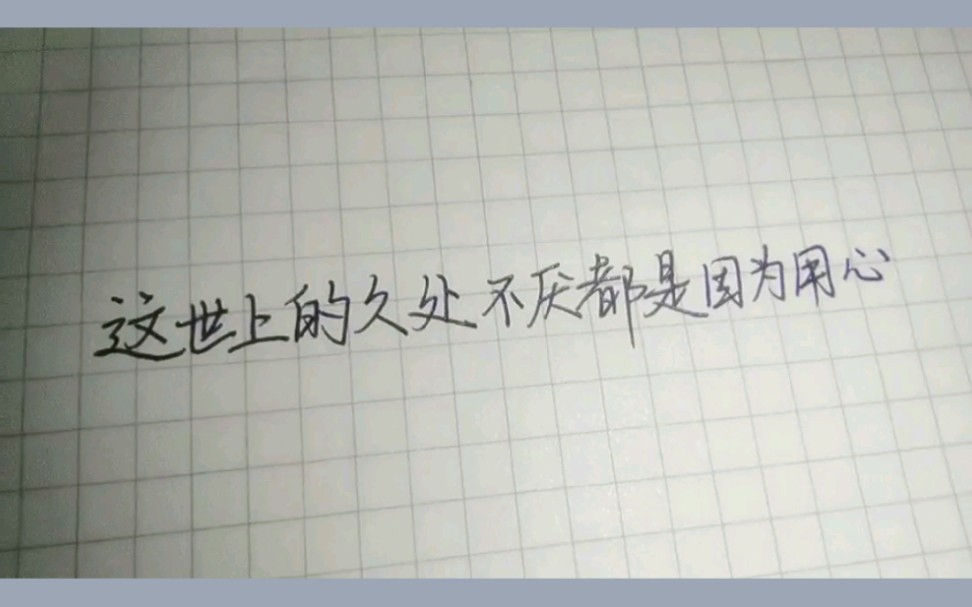 这世上的久处不厌都是因为用心